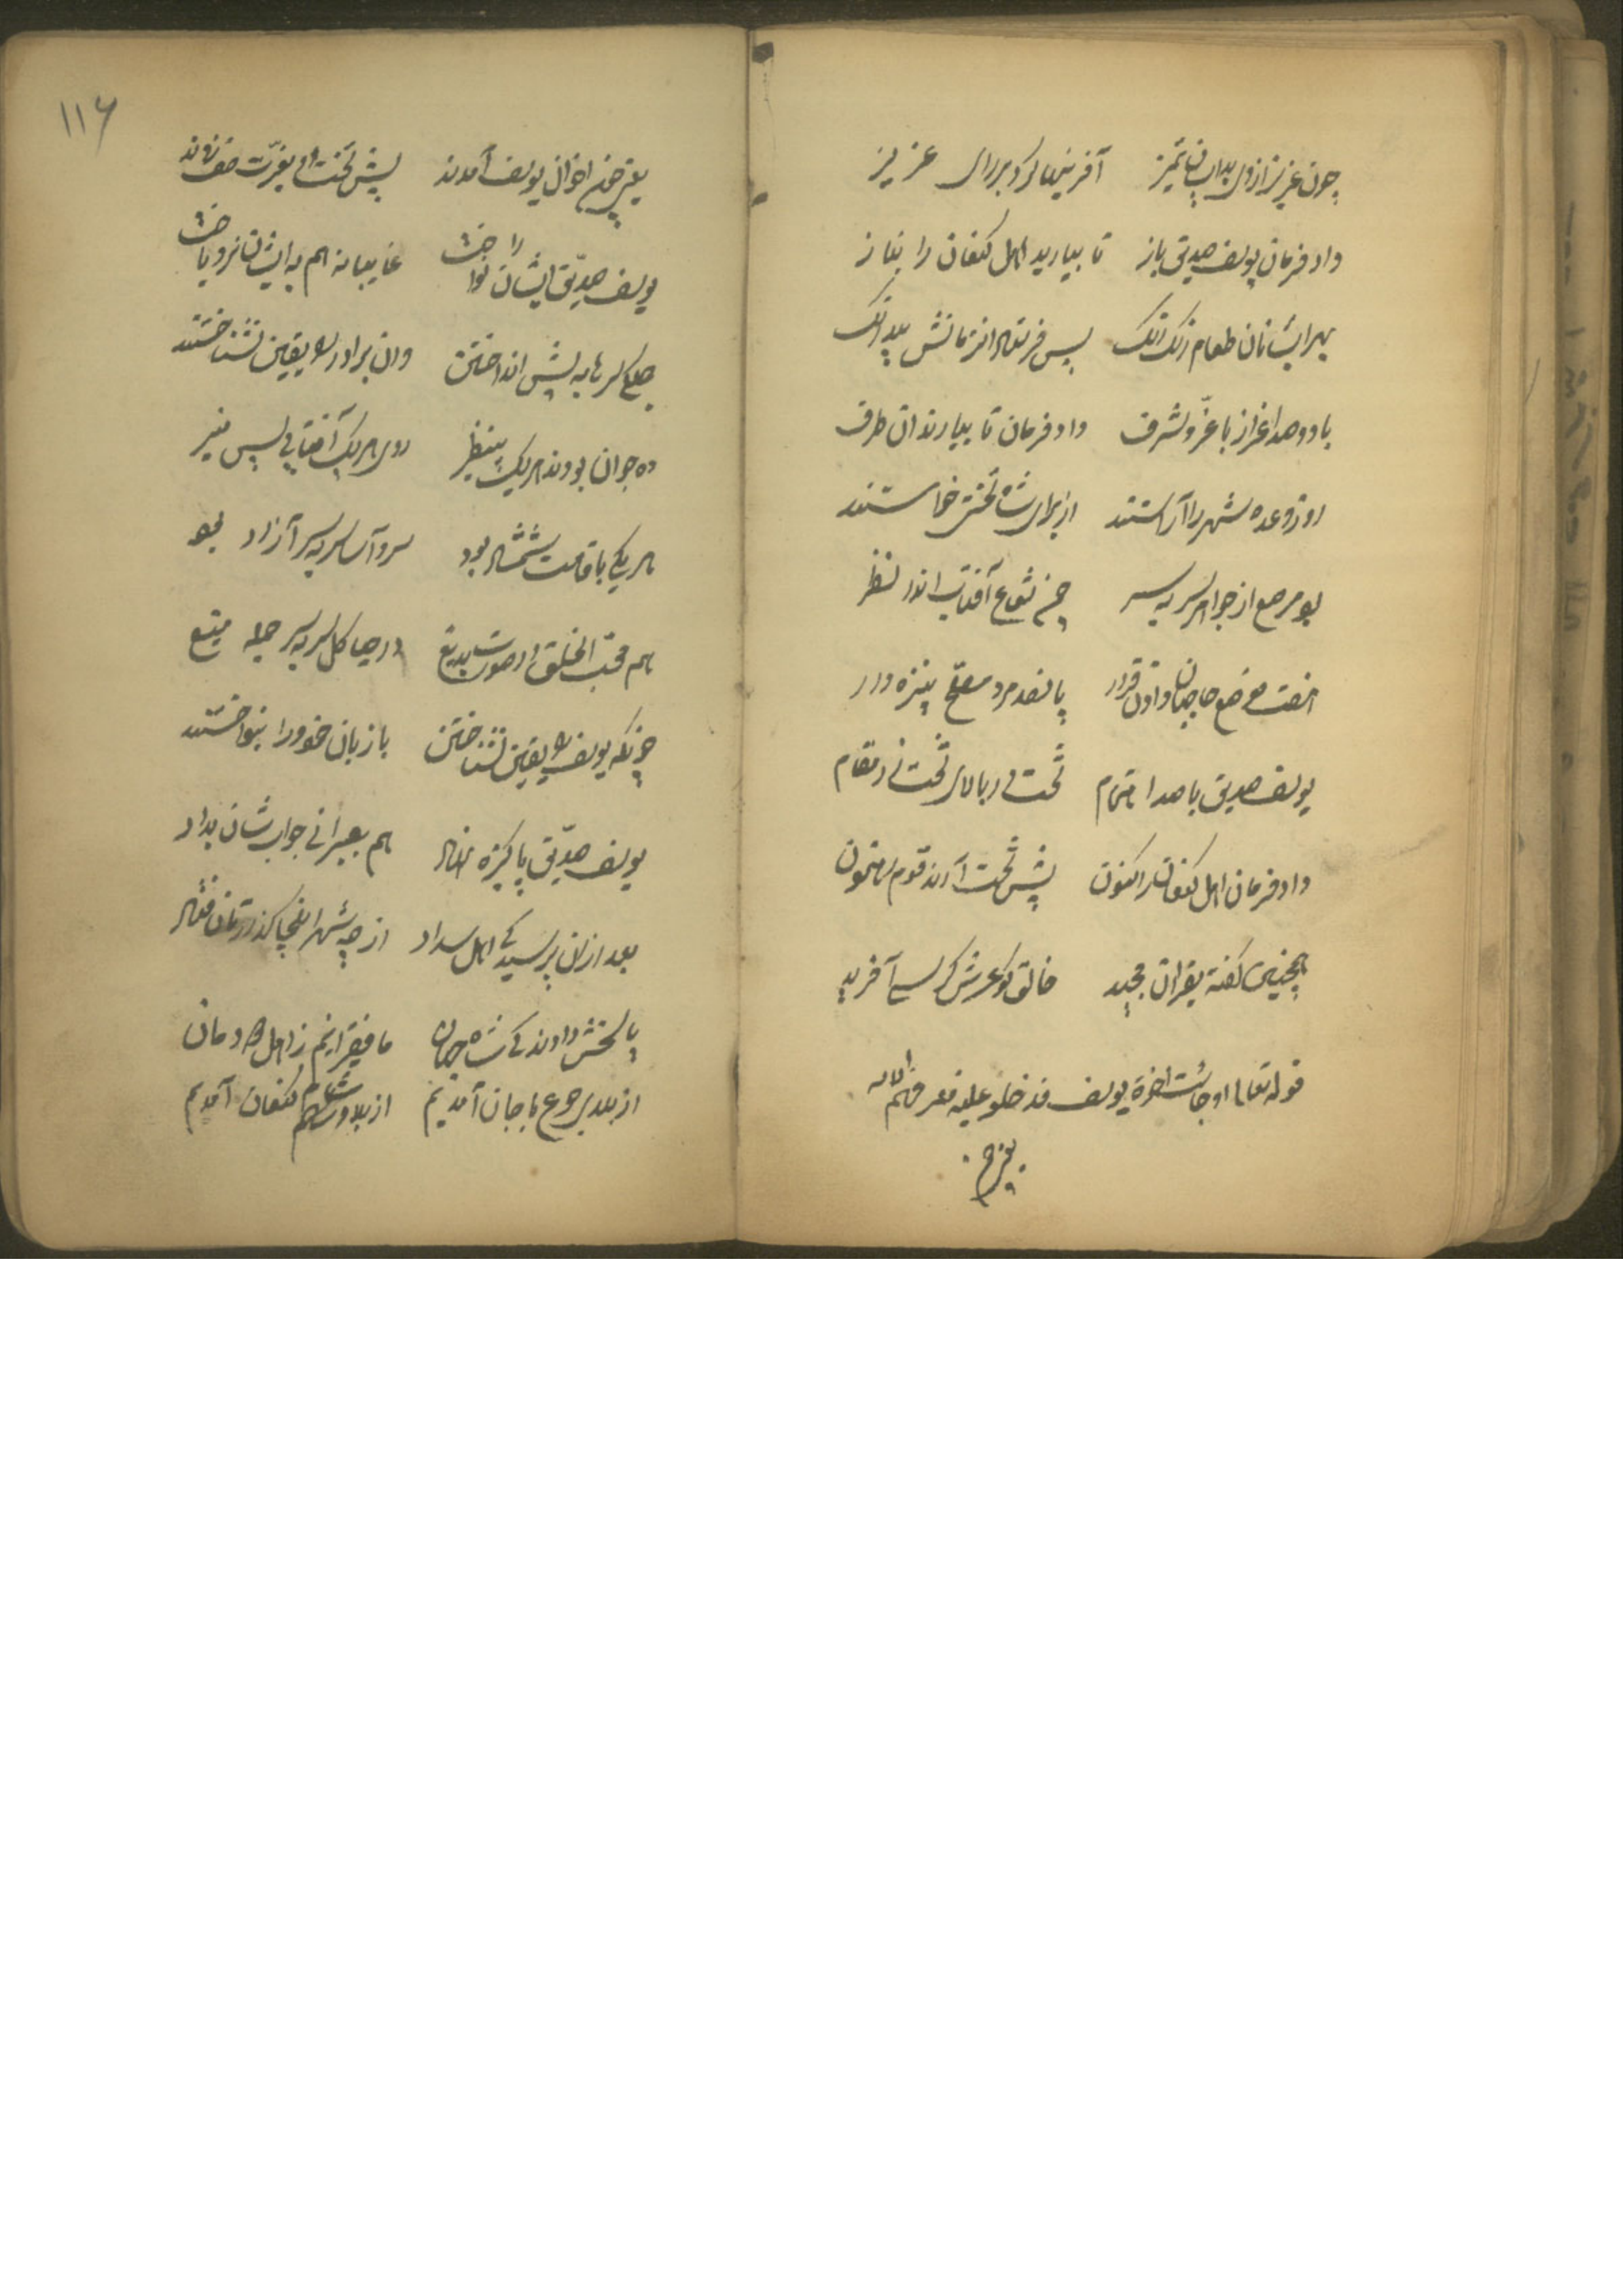 چون عزیز از وی بدید آن تمیز آفرینها کرد بر رای عزیز
داد فرمان یوسف صدیق باز تا بیارید اهل کنعان را بناز
بهر ایشانان طعام رنک رنک پس فرستاد از زمانش بیدرنک
با دو صد اعزاز با عز و شرف داد فرمان تا بیارند ان طرف
روز وعده شهر را آراستند از برای شاه تختش خواستند
بو مرصع از جواهر سر به سر چون شعاع آفتاب اندر نظر
هفت موضع حاجبان دادن قرار پانصد مرد مسلح نیزه دار
یوسف صدیق با صد احتمام تخت در بالای تخت زر مقام
داد فرمان اهل کنعان را کنون پیش تخت آرند قوم
همچنین گفته بقران مجید خالق کو عرش کرسی آفرید
قوله تعالی او جائت اخوة یوسف فدخلو علیه فعرفهم الایه
یعنی چون اخوان یوسف آمدند پیش تخت او بعزت صف زدند
یوسف صدیق ایشان را نواخت غایبانه هم به ایشان نرد باخت
جمله سرها به پیش انداختن وان برادر را یقین نشناختند
ده جوان بودند هریک بینظیر روی هریک آفتابی پس منیر
هر یکی با قامت شمشاد بود سرو آسا سر به سر آزاد بو
هم محب الخلق در صورت بدیع در جما کل سر به سر جمله
چونکه یوسف را یقین نشناختن با زبان خود ورا بنواختند
یوسف صدیق پاکیزه نهاد هم بعبرانی جواب شان بداد
بعد ازان پرسید کی اهل سداد از چه شهر اینجا گذرتان فتاد
پاسخش دادند کی شاه جهان ما فقیرانیم ز اهل دودمان
از بلد بر جوع با جان آمدیم از بلاد شام کنعان آمدیم
۱۱۶